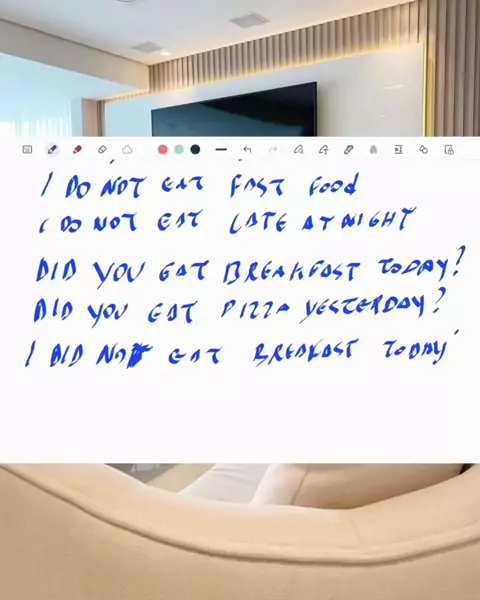 I DO NOT EAT FAST FOOD
I DO NOT EAT LATE AT NIGHT
DID YOU EAT BREAKFAST TODAY?
DID YOU EAT PIZZA YESTERDAY?
I DID NOT EAT BREAKFAST TODAY